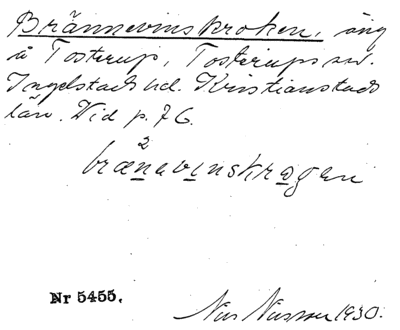 Brännevinskroken, äng
å Tosterup, Tosterups sn.
Ingelstads hd. Kristianstads
län. Vid p. 76.
2
brænavinskrogen
Nr 5455.
Nils Nilsson 1930.